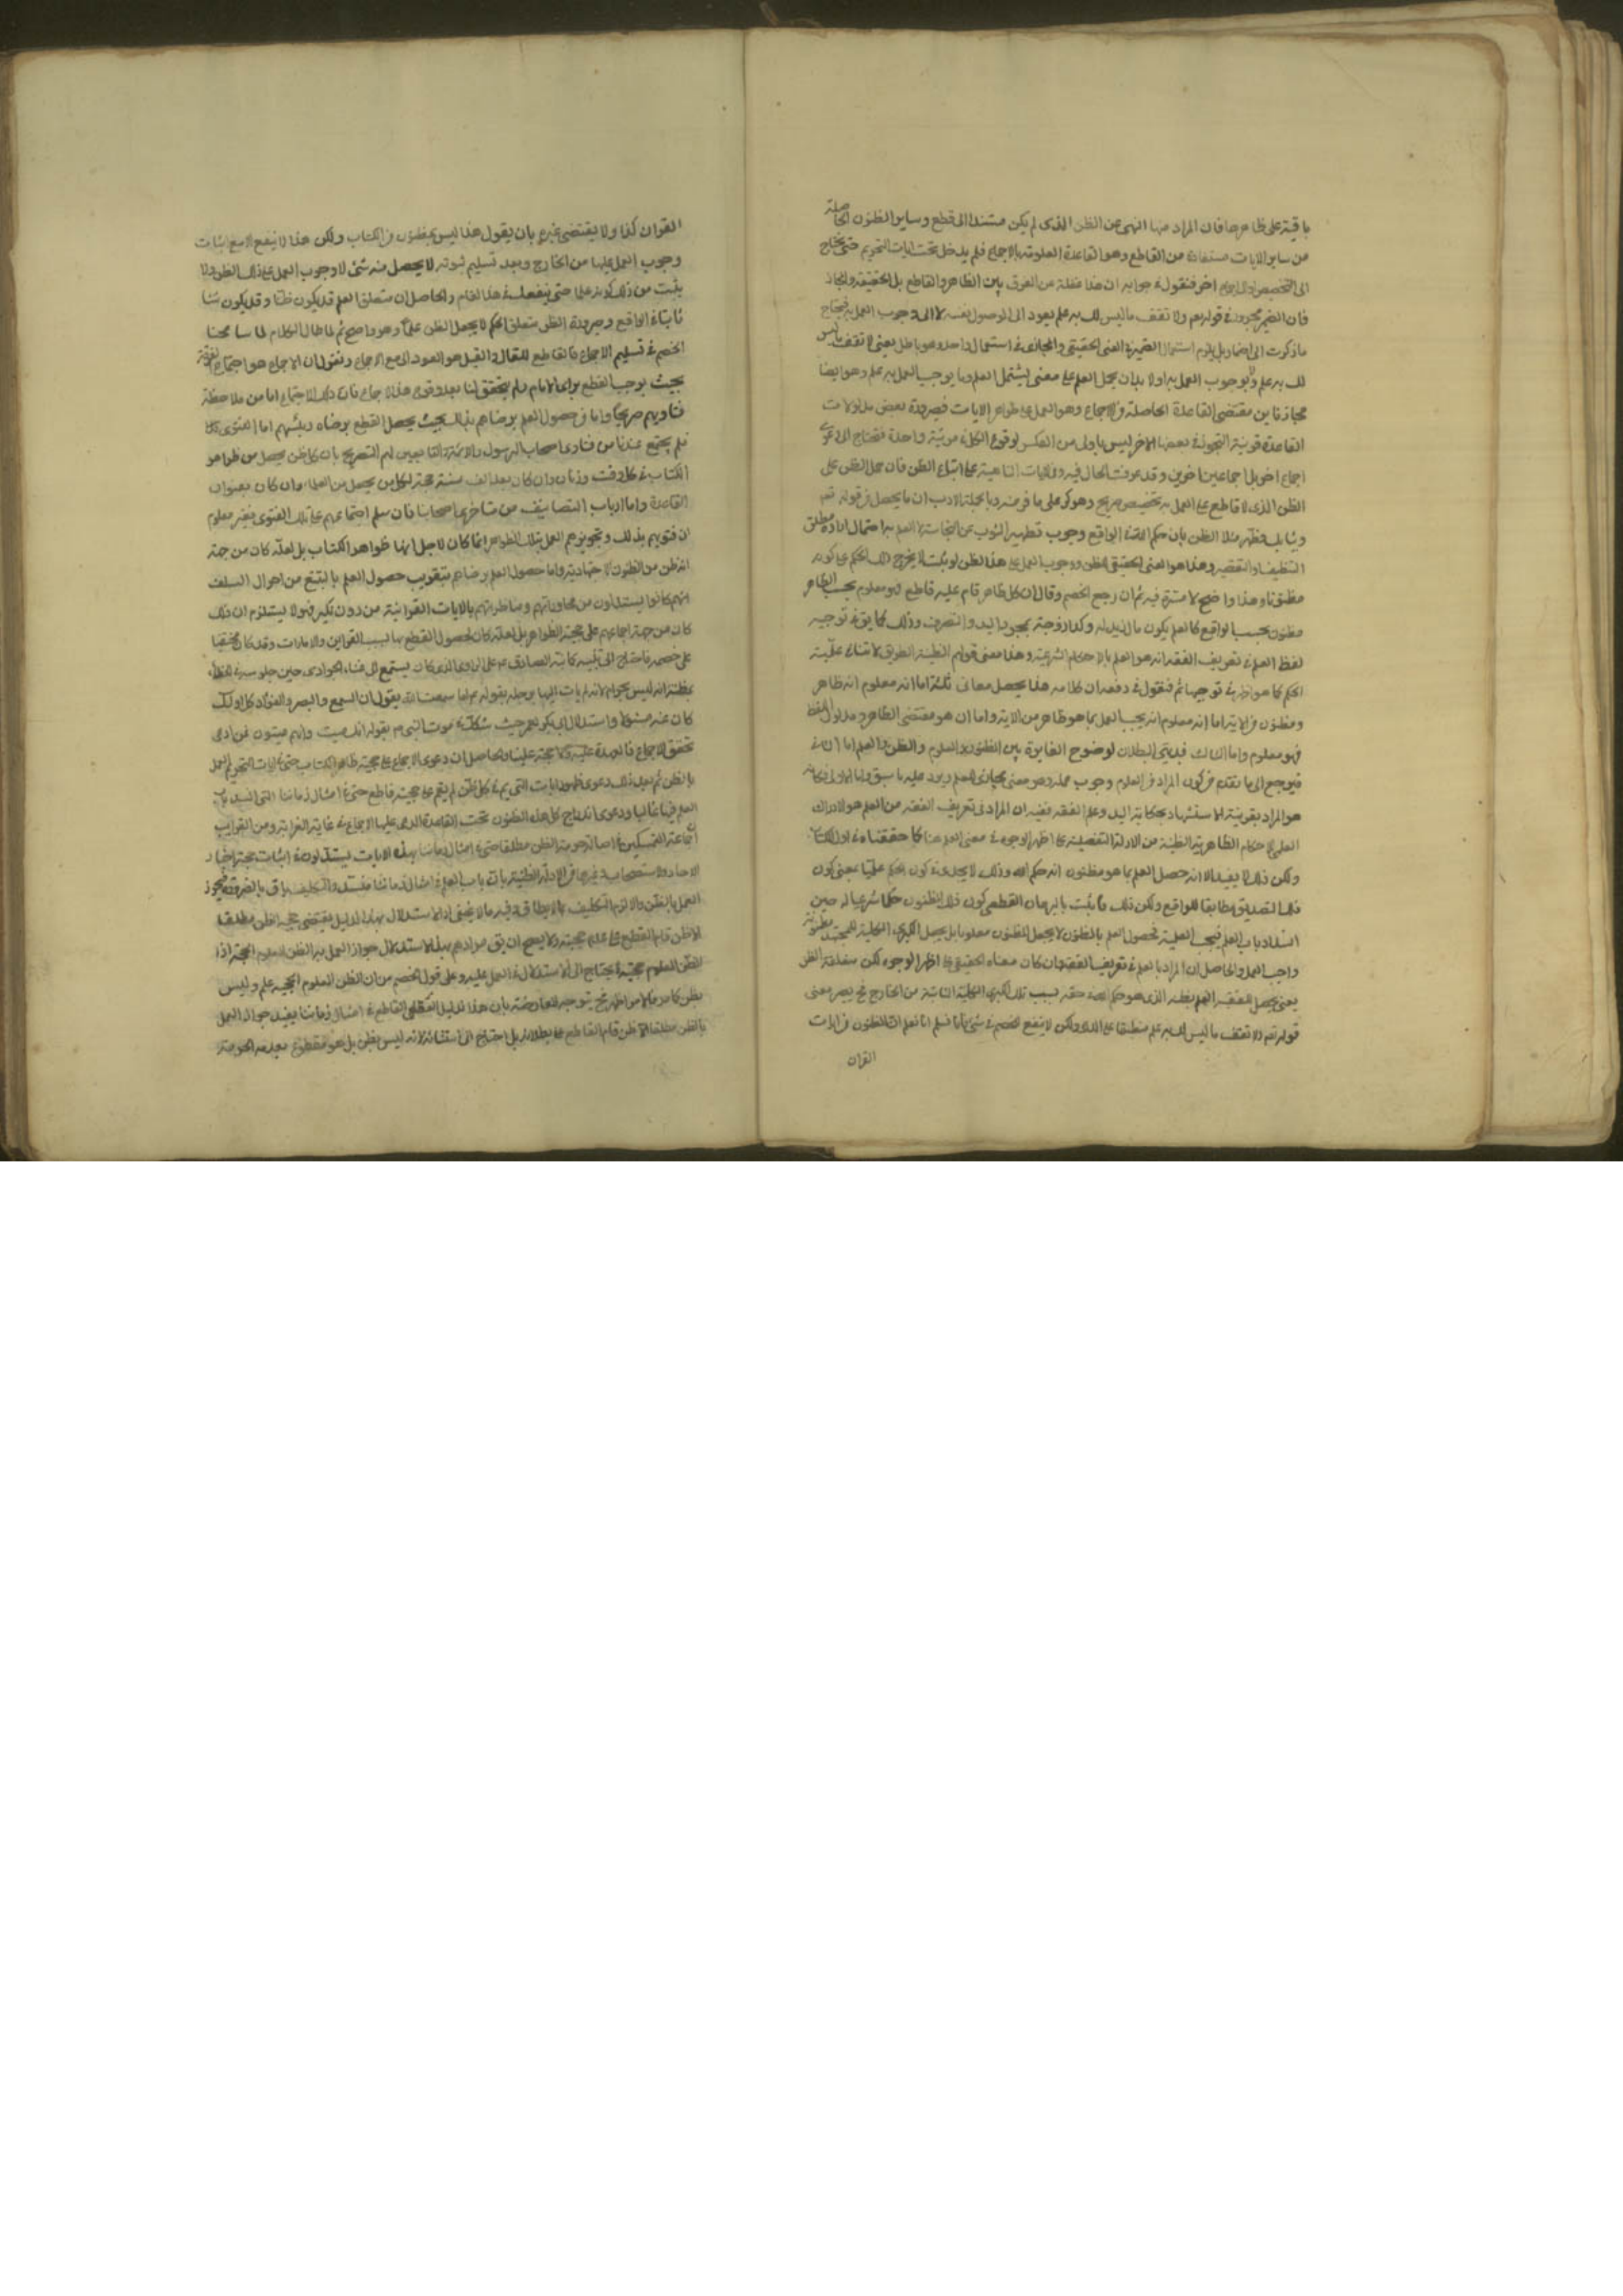 باقية على ظاهرها فان المراد منها النهى عن الظن الذى لم يكن مستندا الى قطع وساير الظنون الحاصلة
من ساير الايات مستفادة من القاطع وهو القاعدة المعلومة بالاجماع فلم يدخل تحت ايات التحريم حتى يحتاج
الى التخصيص اخر فنقول فى جوابه ان هذا غفلة عن الفرق بين الظاهر والقاطع بل الحقيقة والمجاز
فان الضمير المجرور فى قوله تعم ولا تقف ما ليس لك به علم يعود الى الموصول نفسه لا الى وجوب العمل به فيحتاج
ما ذكرت الى اضمار بل يلزم استعمال الضمير فى المعنى الحقيقى والمجازى فى استعمال واحد وهو باطل يعنى لا تقف ما ليس
لك به علم ولا بوجوب العمل به اولا بد ان يحمل العلم على معنى يشتمل العلم وما يوجب العمل به علم وهو ايضا
مجاز نا بن مقتضى القاعدة الحاصلة من الاجماع وهو العمل على ظواهر الايات فصيرورة بعض مدلولات
القاعدة قرينة التجوز فى بعضها الاخر ليس باولى من العكس لوقوع الكل فى مرتبة واحدة فتحتاج الى دعوى
اجماع اخر بل اجماعين اخرين وقد عرفت الحال فيه وفى الايات الناهية على اتباع الظن فان حمل الظن على
الظن الذى لا قاطع على العمل به تخصيص صريح وهو كر على ما فر منه وبالجملة لا ريب ان ما يحصل من قوله تعم
وثيابك فطهر مثلا الظن بان حكم الله فى الواقع وجوب تطهير الثوب عن النجاسة لا العلم به لاحتمال ارادة مطلق
التنظيف او التقصير وهذا هو المعنى الحقيقى للظن ووجوب العمل على هذا الظن لو ثبت لا يخرج ذلك الحكم عن كونه
مظنونا وهذا واضح لا سترة فيه ثم ان رجع الخصم وقال ان كل ظاهر قام عليه قاطع فهو معلوم بحسب الظاهر
مظنون بحسب الواقع كالعلم بكون مال زيد له وكذا زوجته بمجرد اليد والتصرف وذلك كما يق فى توجيه
لفظ العلم فى تعريف الفقه انه هو العلم بالاحكام الشرعية وهذا معنى قولهم الظنية الطريق لا تنافى علمية
الحكم كما هو فى توجيهاته فنقول فى دفعه ان كلامه هذا يحتمل معانى ثلثة اما انه معلوم انه ظاهر
ومظنون من الاية اما انه معلوم انه يجب العمل بما هو ظاهر من الاية واما ان هو مقتضى الظاهر ومدلول اللفظ
فهو معلوم واما الثالث فبديهى البطلان لوضوح المغايرة بين المظنون والمعلوم والظن والعلم اما الثانى
فيرجع الى ما تقدم من كون المراد من المعلوم وجوب عمله وهو معنى مجازى للعلم ويرد عليه ما سبق واما الاول فكانه
هو المراد بقرينة الاستشهاد بحكاية اليد وعلم الفقه ففيه ان المراد فى تعريف الفقه من العلم هو الادراك
العلمى لاحكام الظاهرية الظنية من الادلة التفصيلية على اظهر الوجوه فى معنى العلم هنا كما حققناه فى اول الكتاب
ولكن ذلك لا يفيد الا انه حصل العلم بما هو مظنون انه حكم الله وذلك لا يجدى فى كون الحكم علميا بمعنى كون
ذلك التصديق مطابقا للواقع ولكن ذلك ما يثبت بالبرهان القطعى كون ذلك المظنون حكما شرعيا له حين
انسداد باب العلم فيجب العملية لحصول العلم بالمظنون لا يجعل المظنون معلوما بل يجعل الكبرى الكلية للمجتهد مظنونة
واجب العمل والحاصل ان المراد بالعلم فى تعريف الفقه وان كان معناه الحقيقى على اظهر الوجوه لكن متعلقه الظن
يعنى يحصل للفقيه العلم بظنه الذى هو حكم الله فى حقه بسبب تلك الكبرى الكلية الثابتة من الخارج نح يصير معنى
قوله تعم ولا تقف ما ليس لك به علم منطبقا على المدعى ولكن لا ينفع للخصم فى شئ فانا نسلم انا نعلم ان المظنون من ايات
القران
القران كذا ولا يقتضى غيره بان يقول هذا ليس بمظنون من الكتاب ولكن هذا لا ينفع الا مع اثبات
وجوب العمل عليها من الخارج وبعد تسليم ثبوته لا يحصل منه شئ الا وجوب العمل على ذلك الظن ولا
يثبت من ذلك كونه علما حتى ينفعك فى هذا المقام والحاصل ان متعلق العلم قد يكون ظنا وقد يكون شيئا
ثابتا فى الواقع وصيرورة الظن متعلق الحكم لا يجعل الظن علما وهو واضح ثم لما طال الكلام لما سامحنا
الخصم فى تسليم الاجماع فالقاطع للمقال والقيل هو العود الى منع الاجماع ونقول ان الاجماع هو اجتماع الفرقة
بحيث يوجب القطع براى الامام ولم يتحقق لنا بعد وقوع هذا الاجماع فان ذلك الاجتماع اما من ملاحظة
فتاويهم صريحا واما من حصول العلم برضاهم بذلك بحيث يحصل القطع برضاه رئيسهم اما الفتوى بذلك
فلم يجتمع عندنا من فتاوى اصحاب الرسول والائمة والتابعين لهم التصريح بان كل ظن يحصل من ظواهر
الكتاب فى كل وقت وزمان وان كان بعد الف سنة حجة لكل من يحصل من العلماء وان كان بعنوان
القاعدة واما ارباب التصانيف من متاخرى اصحابنا فان سلم اجتماعهم على تلك الفتوى فغير معلوم
ان فتويهم بذلك وتجويزهم العمل بتلك الظواهر انما كان لاجل انها ظواهر الكتاب بل لعله كان من جهة
انه ظن من الظنون الاجتهادية واما حصول العلم برضاهم فتقريب حصول العلم بالتتبع من احوال السلف
انهم كانوا يستدلون من محاوراتهم ومناظراتهم بالايات القرانية من دون نكير فهو لا يستلزم ان ذلك
كان من جهة اجماعهم على حجية الظواهر بل لعله كان لحصول القطع بها بسبب القراين والامارات وقد كان مختفيا
على خصمه فاحتاج الى تنبيه كتنبيه الصادق عم على الراوى الذى كان يستمع الى غناء الجوارى حين جلوسه فى الخلاء
بظنه انه ليس بحرام لانه لم يات اليها برجله بقوله عم اما سمعت الله يقول ان السمع والبصر والفؤاد كل اولئك
كان عنه مسئولا واستدلال ابى بكر لعمر حيث شك فى موت النبى ص بقوله انك ميت وانهم ميتون فمن ادعى
تحقق الاجماع فالعهدة عليه ولا حجة علينا والحاصل ان دعوى الاجماع على حجية ظاهر الكتاب حتى فى ايات التحريم العمل
بالظن ثم بعد ذلك دعوى ظهور ايات التحريم فى كل ظن لم يقم على حجيته قاطع حتى فى امثال زماننا التى انسد باب
العلم فيها غالبا ودعوى اندراج كل هذه الظنون تحت القاعدة المدعى عليها الاجماع فى غاية الغرابة ومن الغرايب
ان جماعة المتمسكين فى اصالة حرمة الظن مطلقا حتى فى امثال زماننا بهذه الايات يستدلون فى اثبات حجية اخبار
الاحاد والاستصحاب وغيرها من الادلة الظنية بان باب العلم فى امثال زماننا منسد والتكليف باق بالضرورة فيجوز
العمل بالظن والا لزم التكليف بما لا يطاق وفيه ما لا يخفى اذ الاستدلال بهذا الدليل يقتضى حجية الظن مطلقا
الا ظن قام القاطع على عدم حجيته ولا يصح ان يق مرادهم بهذا الاستدلال جواز العمل به الظن المعلوم الحجية اذ
الظن المعلوم حجيته لا يحتاج الى الاستدلال فى العمل عليه وعلى قول الخصم من ان الظن المعلوم الحجية علم وليس
بظن كما مر فالامر اظهر نح يتوجه المعارضة بان هذا الدليل العقلى القاطع فى امثال زماننا يفيد جواز العمل
بالظن مطلقا الا ظن قام القاطع على بطلانه بل احتاج الى استثنائه لانه ليس بظن بل هو مقطوع بعدمه الحرمة